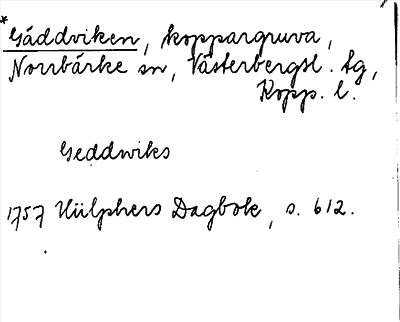 *Gäddviken, koppargruva,
Norrbärke sn, Västerbergsl. tg,
Kopp. l.
Geddwiks
1757 Hülphers Dagbok, s. 612.